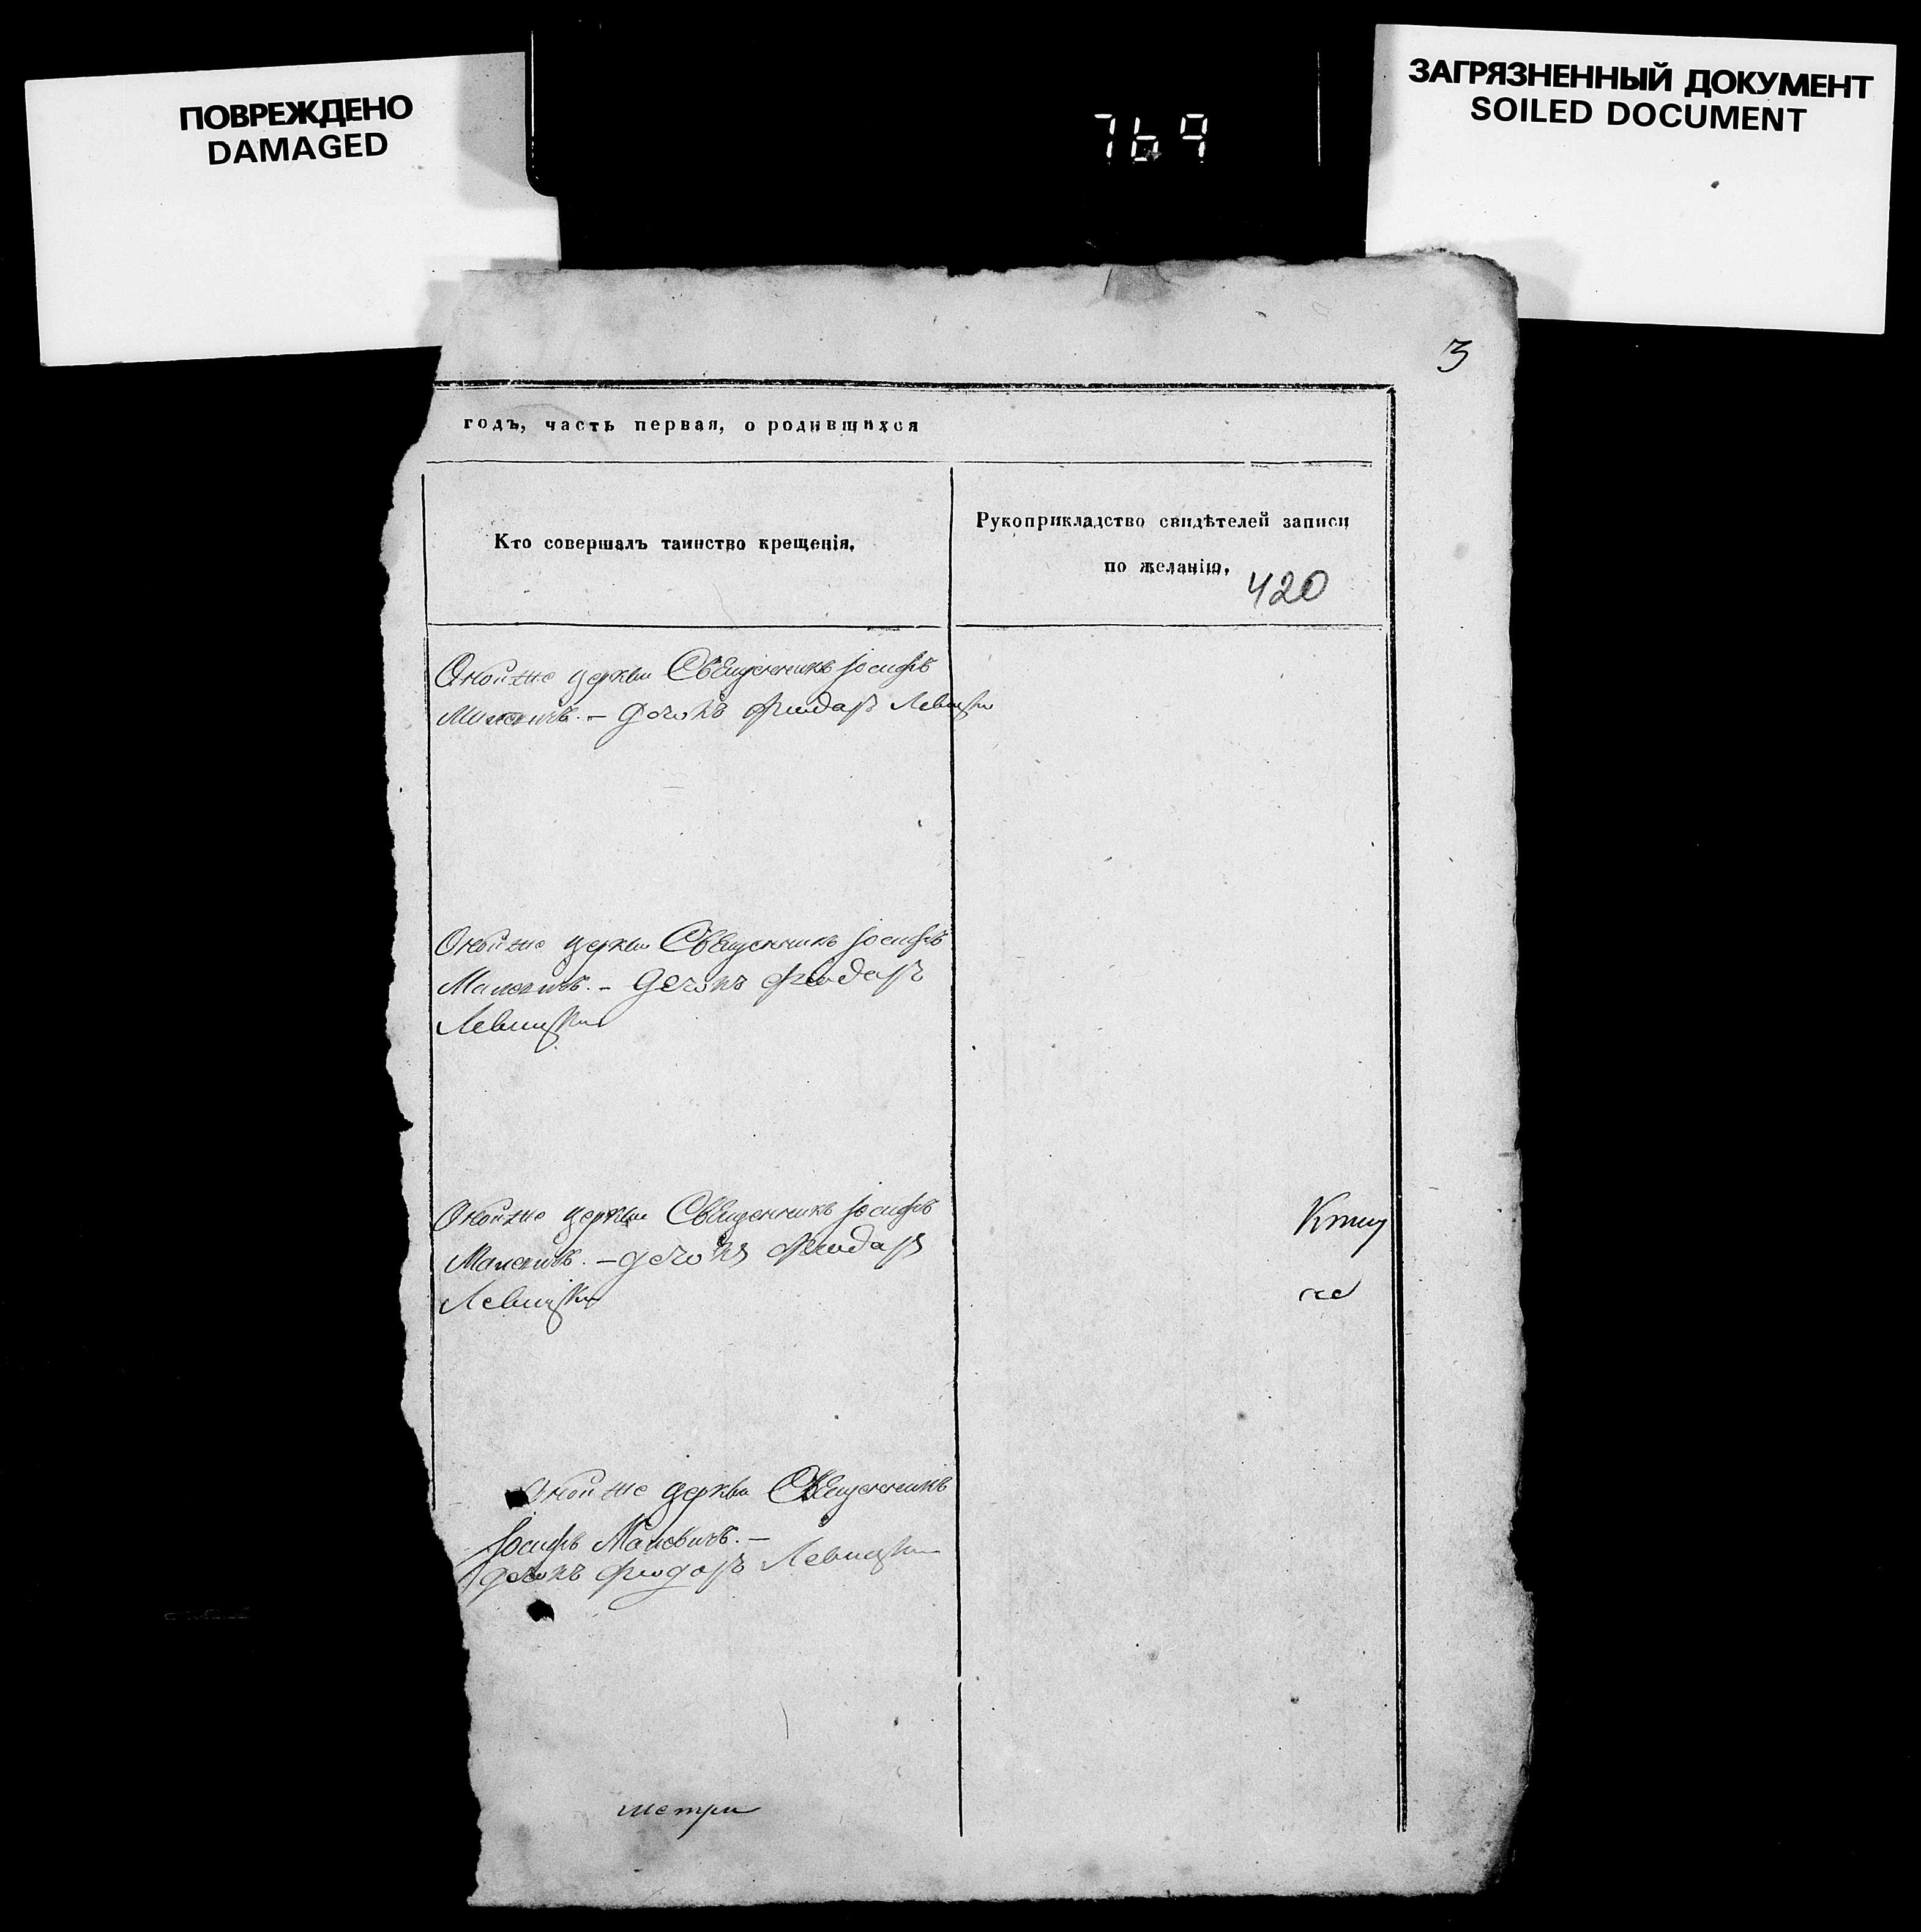 ПОВРЕЖДЕНО
DAMAGED
769
ЗАГРЯЗНЕННЫЙ ДОКУМЕНТ
SOILED DOCUMENT
3
годъ, часть первая, о родившихся
Кто совершалъ таинство крещенія.
Рукоприкладство свидѣтелей записи
по желанію.
420
Оной же церкви Священникъ Іосифъ
дьчокъ Фиодаръ Левицки
Оной же церкви Священникъ Іосифъ
дьчокъ Фиодаръ
Левицки
Оной же церкви Священникъ Іосифъ
дьчокъ Фиодаръ
Левицки
Оной же церкви Священникъ
Іосифъ
дьчокъ Фиодаръ Левицки
метри